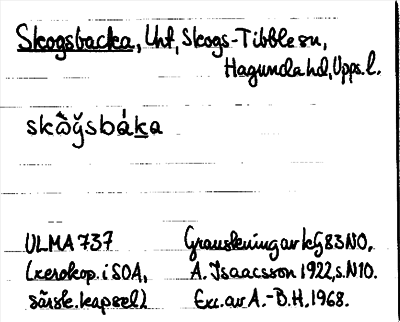 Skogsbacka, Unt, Skogs-Tibble sn,
Hagunda hd, Upps. l.
skὼğsbáka
ULMA 737
(xerokop. i SOA,
särsk. kapsel)
Granskning av kG 83 NO,
A. Isaacsson 1922, s. N10.
Exc. av A.-B.H. 1968.